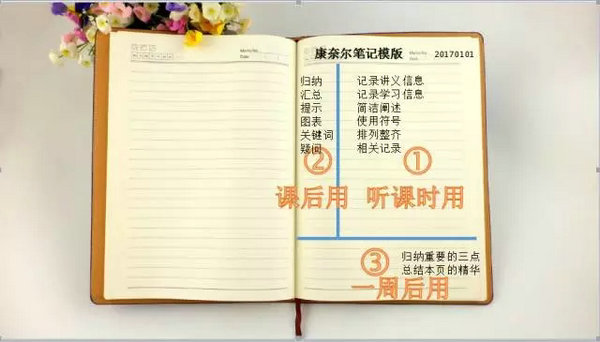 康奈尔笔记模版
20170101
归纳
汇总
提示
图表
关键词
疑问
②
课后用
记录讲义信息
记录学习信息
简洁阐述
使用符号
排列整齐
相关记录
①
听课时用
③
归纳重要的三点
总结本页的精华
一周后用